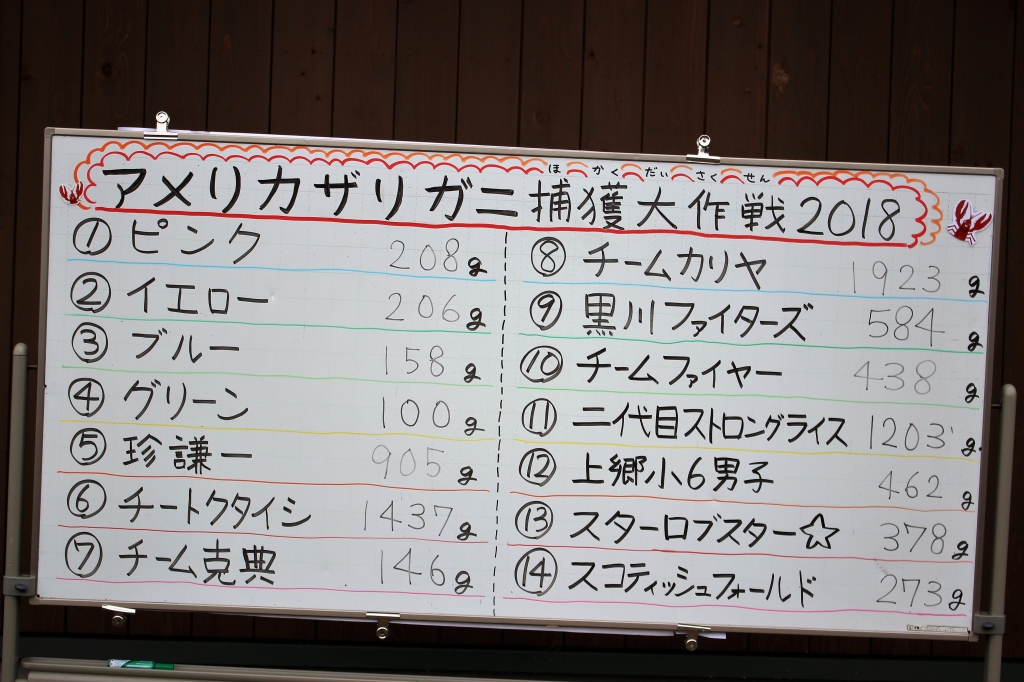 ほかくだいさくせん
アメリカザリガニ捕獲大作戦2018
①ピンク 208g
②イエロー 206g
③ブルー 158g
④グリーン 100g
⑤珍謙一 905g
⑥チートクタイシ 1437g
⑦チーム克典 146g
⑧チームカリヤ 1923g
⑨黒川ファイターズ 584g
⑩チームファイヤー 438g
⑪二代目ストロングライス 1203g
⑫上郷小6男子 462g
⑬スターロブスター☆ 378g
⑭スコティッシュフォールド 273g